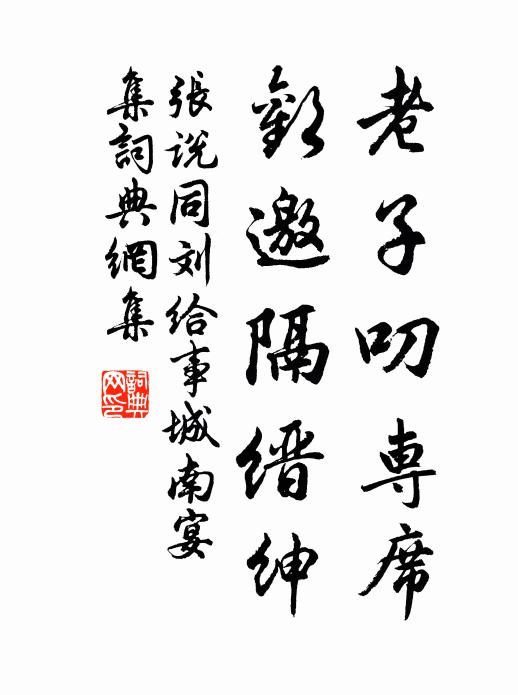 老子叨専席
歡邀隔缙绅
張说同刘给事城南宴
集詞典網集
詞典
网印